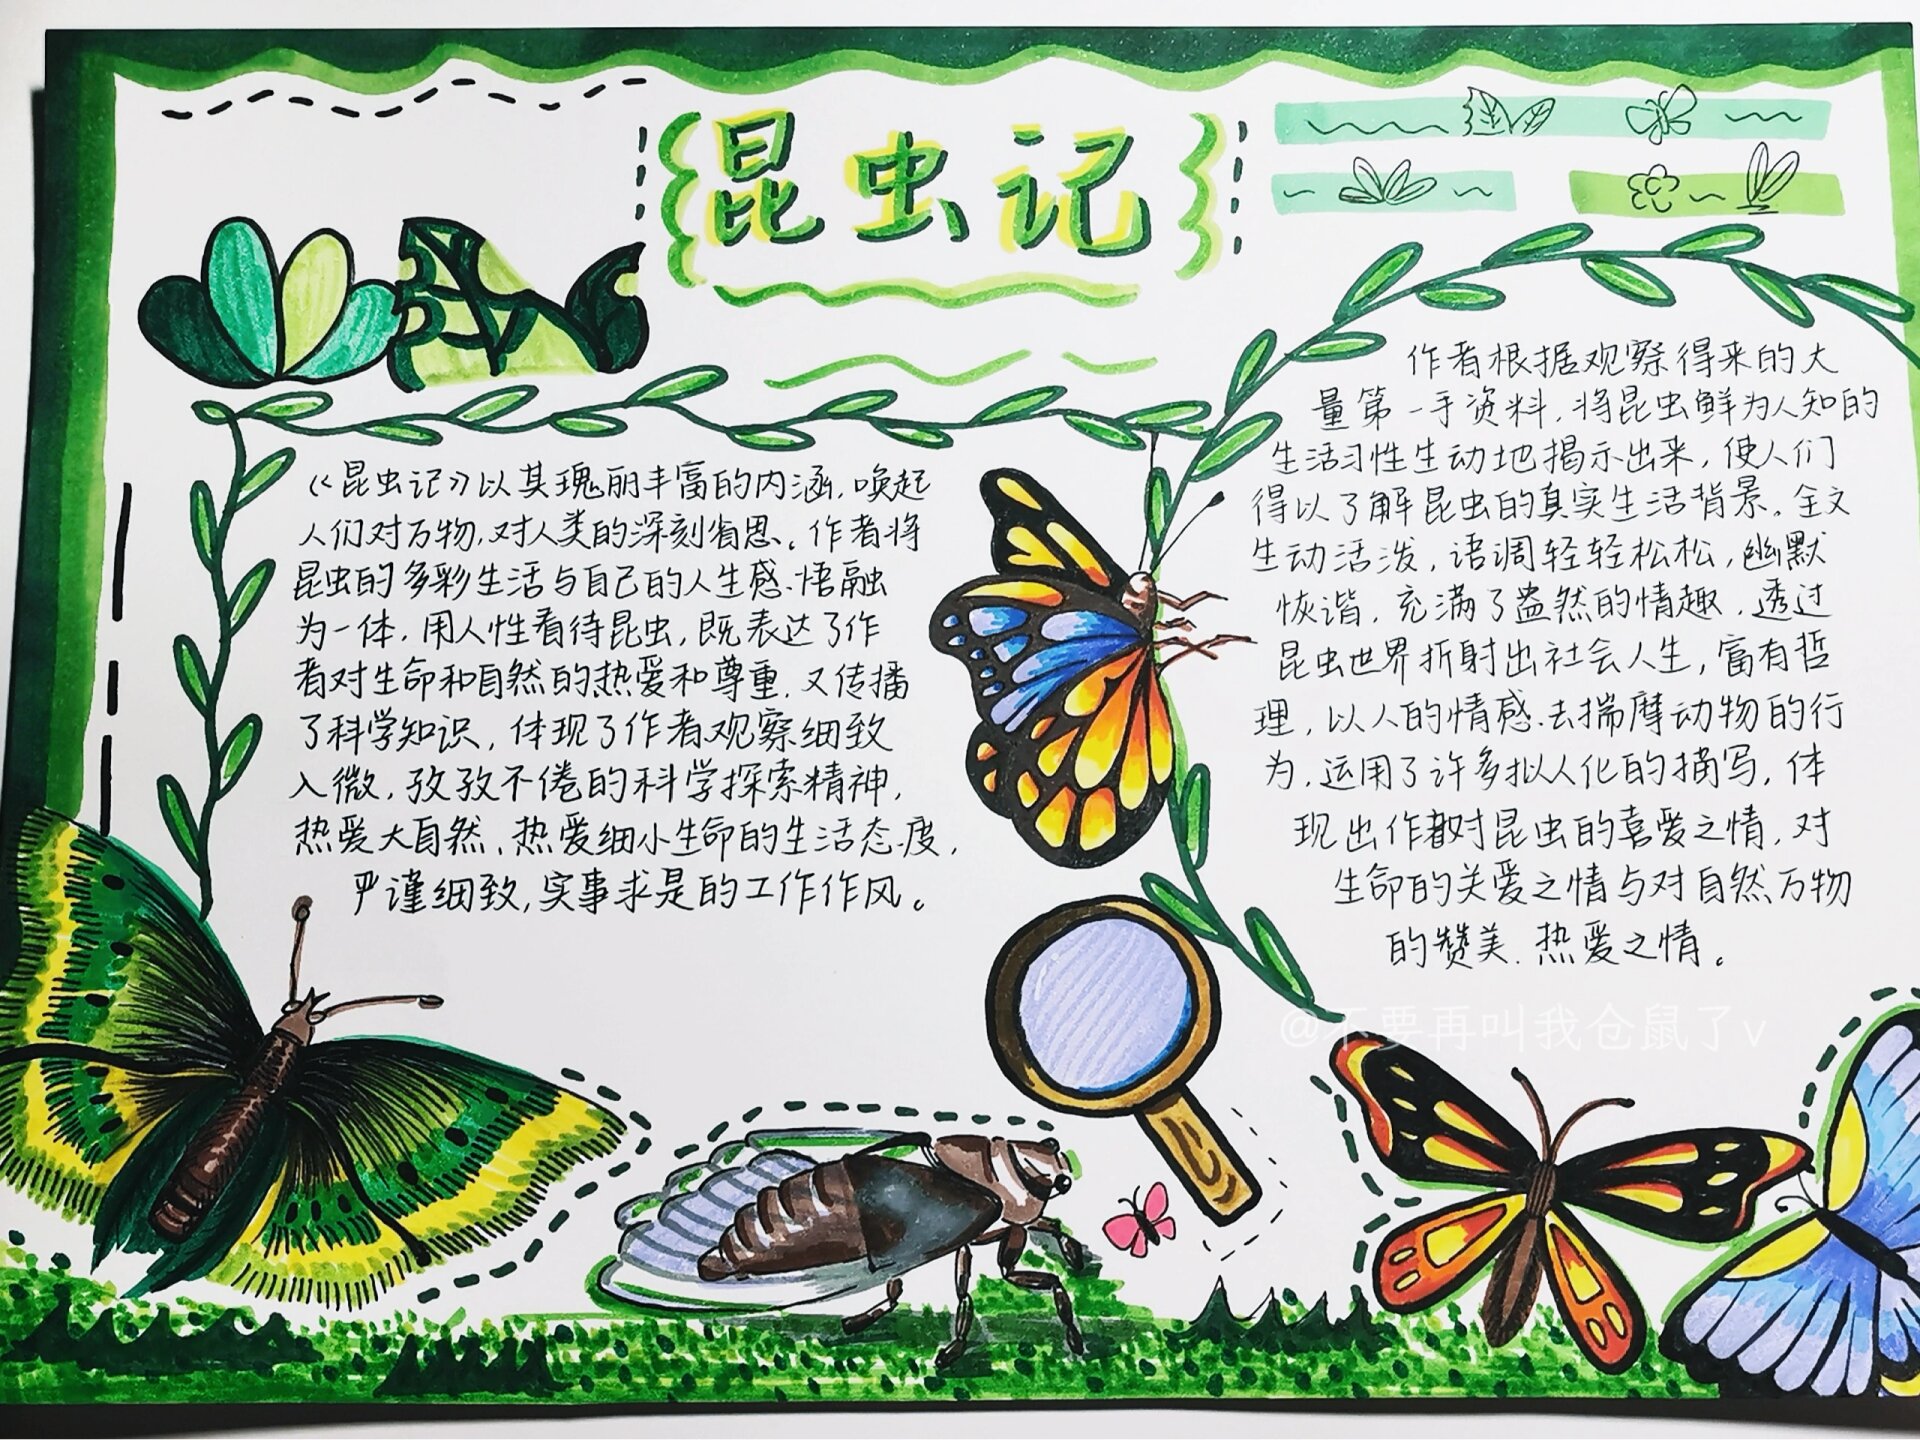 昆虫记
《昆虫记》以其瑰丽丰富的内涵,唤起
人们对万物,对人类的深刻省思。作者将
昆虫的多彩生活与自己的人生感悟融
为一体,用人性看待昆虫,既表达了作
者对生命和自然的热爱和尊重,又传播
了科学知识,体现了作者观察细致
入微,孜孜不倦的科学探索精神,
热爱大自然、热爱细小生命的生活态度,
严谨细致,实事求是的工作作风。
作者根据观察得来的大
量第一手资料,将昆虫鲜为人知的
生活习性生动地揭示出来,使人们
得以了解昆虫的真实生活背景。全文
生动活泼,语调轻轻松松,幽默
恢谐,充满了盎然的情趣,透过
昆虫世界折射出社会人生,富有哲
理,以人的情感去揣摩动物的行
为,运用了许多拟人化的描写,体
现出作者对昆虫的喜爱之情,对
生命的关爱之情与对自然万物
的赞美、热爱之情。
@不要再叫我仓鼠了v